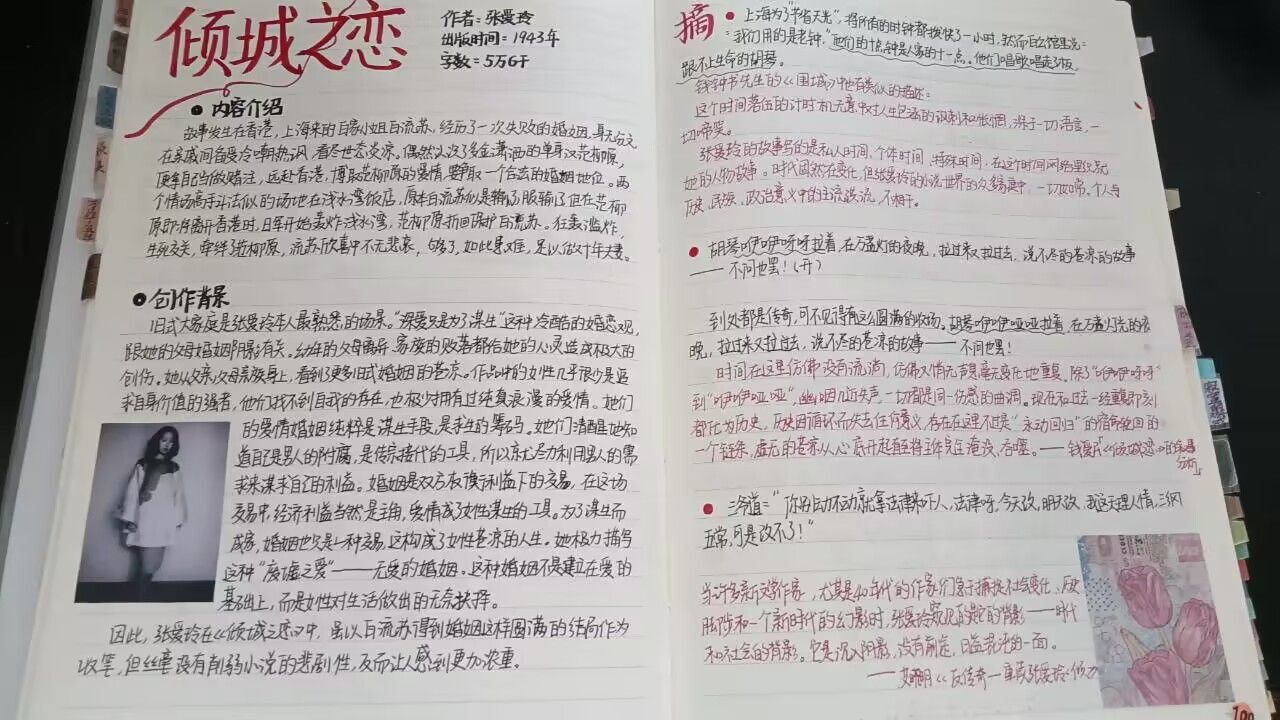 倾城之恋
作者：张爱玲
出版时间：1943年
字数：5万6千
● 内容介绍
故事发生在香港，上海来的白家小姐白流苏，经历了一次失败的婚姻，身无分文，
在亲戚间备受冷嘲热讽，看尽世态炎凉，偶然认识了多金潇洒的单身汉范柳原，
便拿自己当做赌注，远赴香港，博取范柳原的爱情，要争取一个合法的婚姻地位。两
个情场高手斗法似的场地在浅水湾饭店，原本白流苏似是输了服输了，但在范柳
原即将离开香港时，日军开始轰炸浅水湾，范柳原折回保护白流苏。在轰炸，
生死交关，牵绊范柳原，流苏欣喜中不无悲哀，够了，如此患难，足以做十年夫妻。
● 创作背景
旧式大家庭是张爱玲本人最熟悉的场景。“嫁娶只是为了谋生”这种冷酷的婚恋观，
跟她的父母婚姻阴影有关。幼年的父母离异、家庭的败落都给她的心灵造成极大的
创伤。她从父亲父母亲族身上，看到了更多旧式婚姻的苍凉。作品中的女性几乎很少是追
求自身价值的强者，他们找不到自我的存在，也极少拥有过纯真浪漫的爱情。她们
的爱情婚姻纯粹是谋生手段，是求生的筹码。她们清醒地知
道自己是男人的附庸，是传宗接代的工具，所以东尤尽力利用男人的需
求来谋求自己的利益。婚姻是双方权衡利益下的交易，在这场
交易中，经济利益当然是主角，爱情成了女性谋生的工具。为了谋生而
成家，婚姻也只是一种交易，这构成了女性苍凉的人生。她极力描写
这种“废墟之爱”——无爱的婚姻。这种婚姻不是建立在爱的
基础上，而是女性对生活做出的无奈抉择。
因此，张爱玲在《倾城之恋》中，虽以白流苏得到婚姻这样圆满的结局作为
收笔，但丝毫没有削弱小说的悲剧性，反而让人感到更加浓重。
摘
● 上海为了“节省天光”，将所有的时钟都拨快了一小时，然而白公馆里说：
“我们用的是老钟，”他们的十点钟是人家的十一点。他们唱歌唱走了板，
跟不上生命的胡琴。
钱钟书先生的《围城》中也有类似的描述：
这个时间落伍的计时机无意中对人生包涵的讽刺和怅惘，深于一切语言，一
切啼笑。
张爱玲的故事写的是私人时间，个体时间，特殊时间，在这个时间网络里
她的人物故事。时代固然在变化，但张爱玲的小说世界的众多男女，一切如常，个人与
历史、民族、政治意义中的主流洪流，不相干。
● 胡琴咿咿呀呀拉着，在万盏灯的夜晚，拉过来又拉过去，说不尽的苍凉的故事
—— 不问也罢！（开）
到处都是传奇，可不见得有这么圆满的收场。胡琴咿咿哑哑拉着，在万盏灯的夜
晚，拉过来又拉过去，说不尽的苍凉的故事——不问也罢！
时间在这里仿佛没有流淌，仿佛义情无丝毫变化地重复，除了“咿咿呀呀”
到“咿咿哑哑”，幽咽几近失声，一切都是同一伤感的曲调。现在和过去一经重叠即刻
都化为历史，历史因循环而失去任何意义，存在在这里不过是“永动回归”的宿命轮回的
一个链条，虚无的苍凉从人心底升起自生将生命完全淹没、吞噬。——
● 三爷道：“你别动不动就拿法律来吓人，法律呀，今天改，明天改，我这天理人情，三纲
五常，可是改不了！”
当许多新文学作家，尤其是40年代的作家们急于捕捉社会变化、历史
脚步和一个新时代的幻影时，张爱玲窥见的是它的背影——时代
和社会的背影。它是沉入阴影，没有前途，日益抛光的一面。